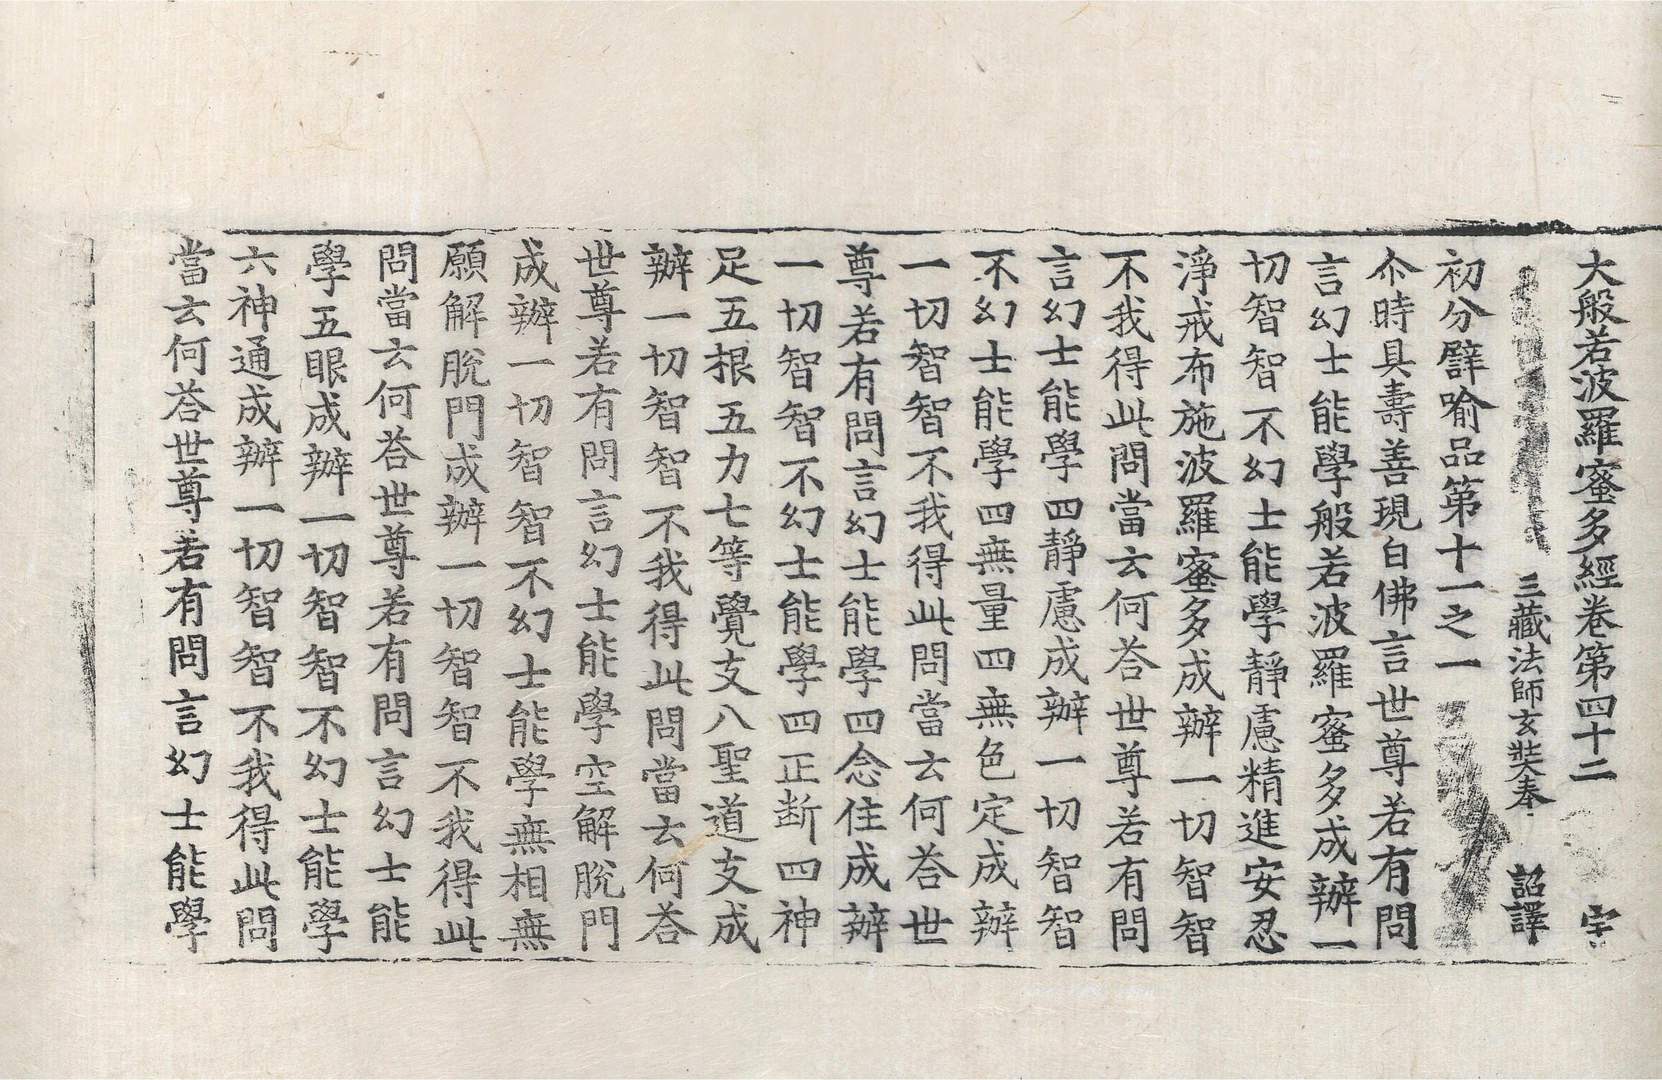 大般若波羅蜜多經卷第四十二 宇
三藏法師玄奘奉 詔譯
初分譬喻品第十一之一
尒時具壽善現白佛言世尊若有問
言幻士能學般若波羅蜜多成辦一
切智智不幻士能學靜慮精進安忍
淨戒布施波羅蜜多成辦一切智智
不我得此問當云何荅世尊若有問
言幻士能學四靜慮成辦一切智智
不幻士能學四無量四無色定成辦
一切智智不我得此問當云何荅世
尊若有問言幻士能學四念住成辦
一切智智不幻士能學四正断四神
足五根五力七等覺支八聖道支成
辦一切智智不我得此問當云何荅
世尊若有問言幻士能學空解脫門
成辦一切智智不幻士能學無相無
願解脫門成辦一切智智不我得此
問當云何荅世尊若有問言幻士能
學五眼成辦一切智智不幻士能學
六神通成辦一切智智不我得此問
當云何荅世尊若有問言幻士能學